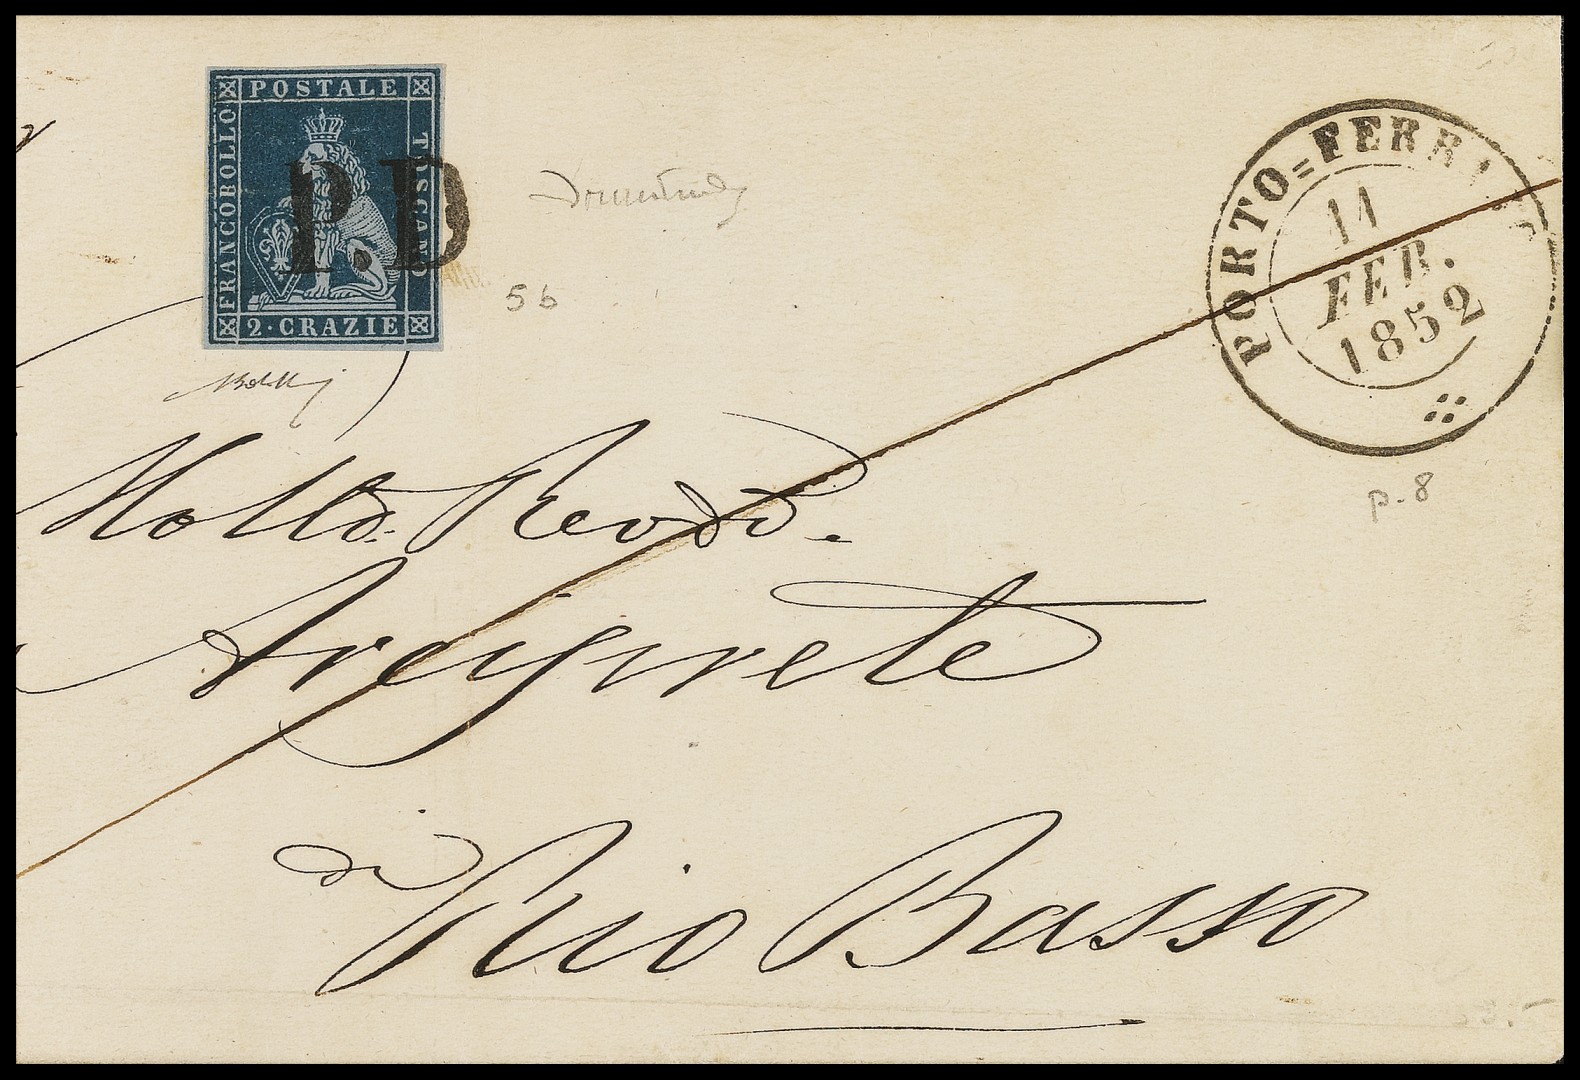 POSTALE
FRANCOBOLLO
TOSCANO
2·CRAZIE
P.D
5 b
PORTO=FERRAJO
11
FEB.
1852
p-8
Molto Revdo.
Arciprete
di Rio Basso